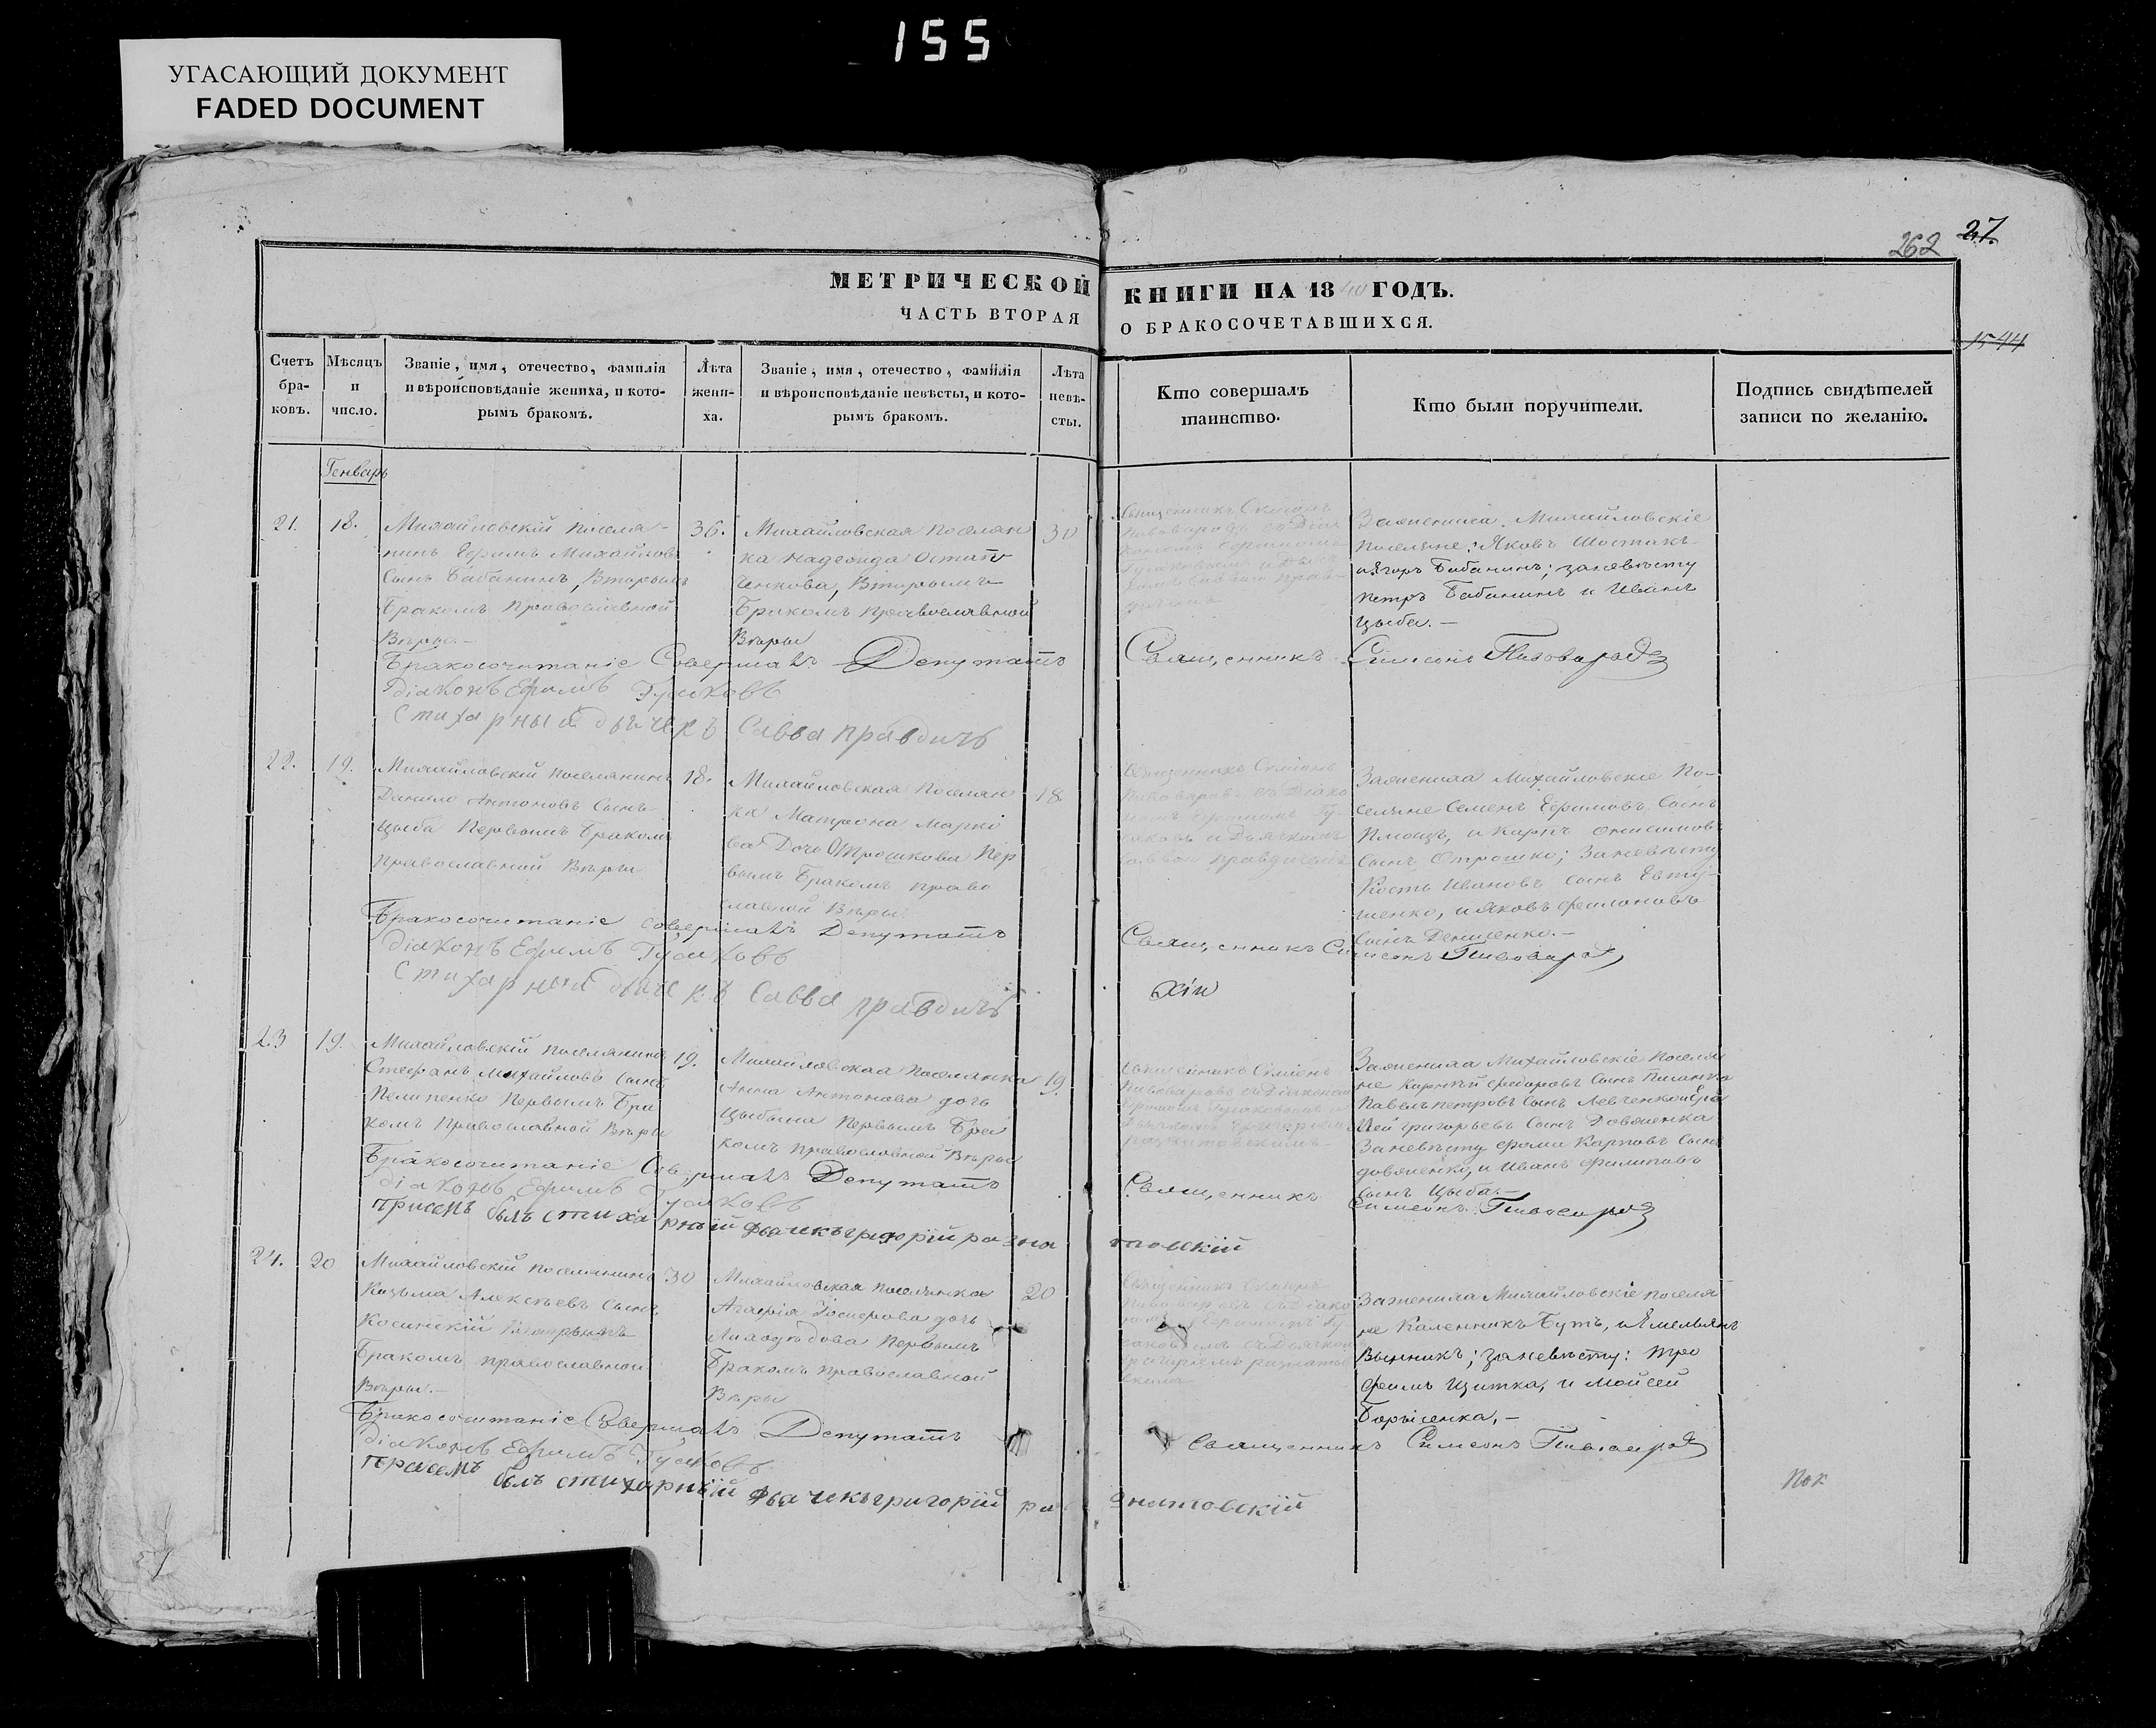 155
УГАСАЮЩИЙ ДОКУМЕНТ
FADED DOCUMENT
262 27.
МЕТРИЧЕСКОЙ КНИГИ НА 1840 ГОДЪ.
ЧАСТЬ ВТОРАЯ О БРАКОСОЧЕТАВШИХСЯ.
1544
Счетъ
бра-
ковъ.
Мѣсяцъ
и
число.
Званіе, имя, отечество, фамилія
и вѣроисповѣданіе жениха, и кото-
рымъ бракомъ.
Лѣта
жени-
ха.
Званіе, имя, отечество, фамилія
и вѣроисповѣданіе невѣсты, и кото-
рымъ бракомъ.
Лѣта
невѣ-
сты.
Кто совершалъ
таинство.
Кто были поручители.
Подпись свидѣтелей
записи по желанію.
Генварь
21.
18.
Михайловскій поселя-
нинъ Ефимъ Михайловъ
сынъ Бабанинъ, вторымъ
бракомъ православной
вѣры.-
36.
Михайловская поселян
ка Надежда Остап
ченкова, вторымъ
бракомъ православной
вѣры
30
Священникъ Симеонъ
Пивоваровъ съ Діа
Зажениха Михайловскіе
поселяне: Яковъ Шостакъ
и Егоръ Бабанинъ; заневѣсту
Петръ Бабанинъ и Иванъ
Цыба.-
Бракосочитаніе Совершалъ Депутатъ Священникъ Симеонъ Пивоваровъ
Діаконъ Ефимъ Гусаковъ
Стихарный дьячекъ Савва Правдичъ
22.
19.
Михайловскій поселянинъ
Данило Антоновъ сынъ
Цыба первымъ бракомъ
православной вѣры
18.
Михайловская поселян
ка Матрона Марко
ва дочь Отрошкова пер
вымъ бракомъ право
славной вѣры
18.
Священникъ Симеонъ
Пивоваровъ съ Діако
номъ Ефимомъ Гу-
саковъ и Дьячкомъ
Саввою Правдичемъ
Зажениха Михайловскіе по-
селяне Семенъ Ефимовъ сынъ
и Карпъ Онисимовъ
сынъ Отрошко; заневѣсту
Кость Ивановъ сынъ Евту-
шенко, и Яковъ Филоновъ
сынъ Денисенко.-
Бракосочитаніе совершалъ Депутатъ Священникъ Симеонъ Пивоваровъ
Діаконъ Ефимъ Гусаковъ
Стихарный дьячекъ Савва Правдичъ
23
19.
Михайловскій поселянинъ
Стефанъ Михайловъ сынъ
Пелипенко первымъ бра
комъ православной вѣры
19.
Михайловская поселянка
Анна Антонова дочь
Цыбина первымъ бра
комъ православной вѣры
19.
Священникъ Симеонъ
Пивоваровъ съ Діакономъ
Ефимомъ Гусаковымъ и
Дьячкомъ Григоріемъ
Зажениха Михайловскіе поселя
не Корнѣй Федоровъ сынъ
Павелъ Петровъ сынъ Левченко
Григорьевъ сынъ Довженко
заневѣсту Фома Карповъ сынъ
Довженко, и Иванъ Филиповъ
сынъ Цыба.-
Бракосочитаніе Совершалъ Депутатъ Священникъ Симеонъ Пивоваровъ
Діаконъ Ефимъ Гусаковъ
присемъ былъ стихарный дьячекъ григорій разна товскій
24.
20
Михайловскій поселянинъ
Козьма Алексѣевъ сынъ
Косинскій вторымъ
бракомъ православной
вѣры.-
30
Михайловская поселянка
Агафія Іосифова дочь
Лиходѣдова первымъ
бракомъ православной
вѣры
20
Зажениха Михайловскіе поселя
не Каленникъ Бутъ, и Емельянъ
Винникъ; заневѣсту: Тро
фимъ Щитка, и Мойсей
Борисенка,-
Бракосочитаніе Совершалъ Депутатъ священникъ Симеонъ Пивоваровъ
Діаконъ Ефимъ Гусаковъ
присемъ былъ стихарный дьячекъ григорій ра знатовскій